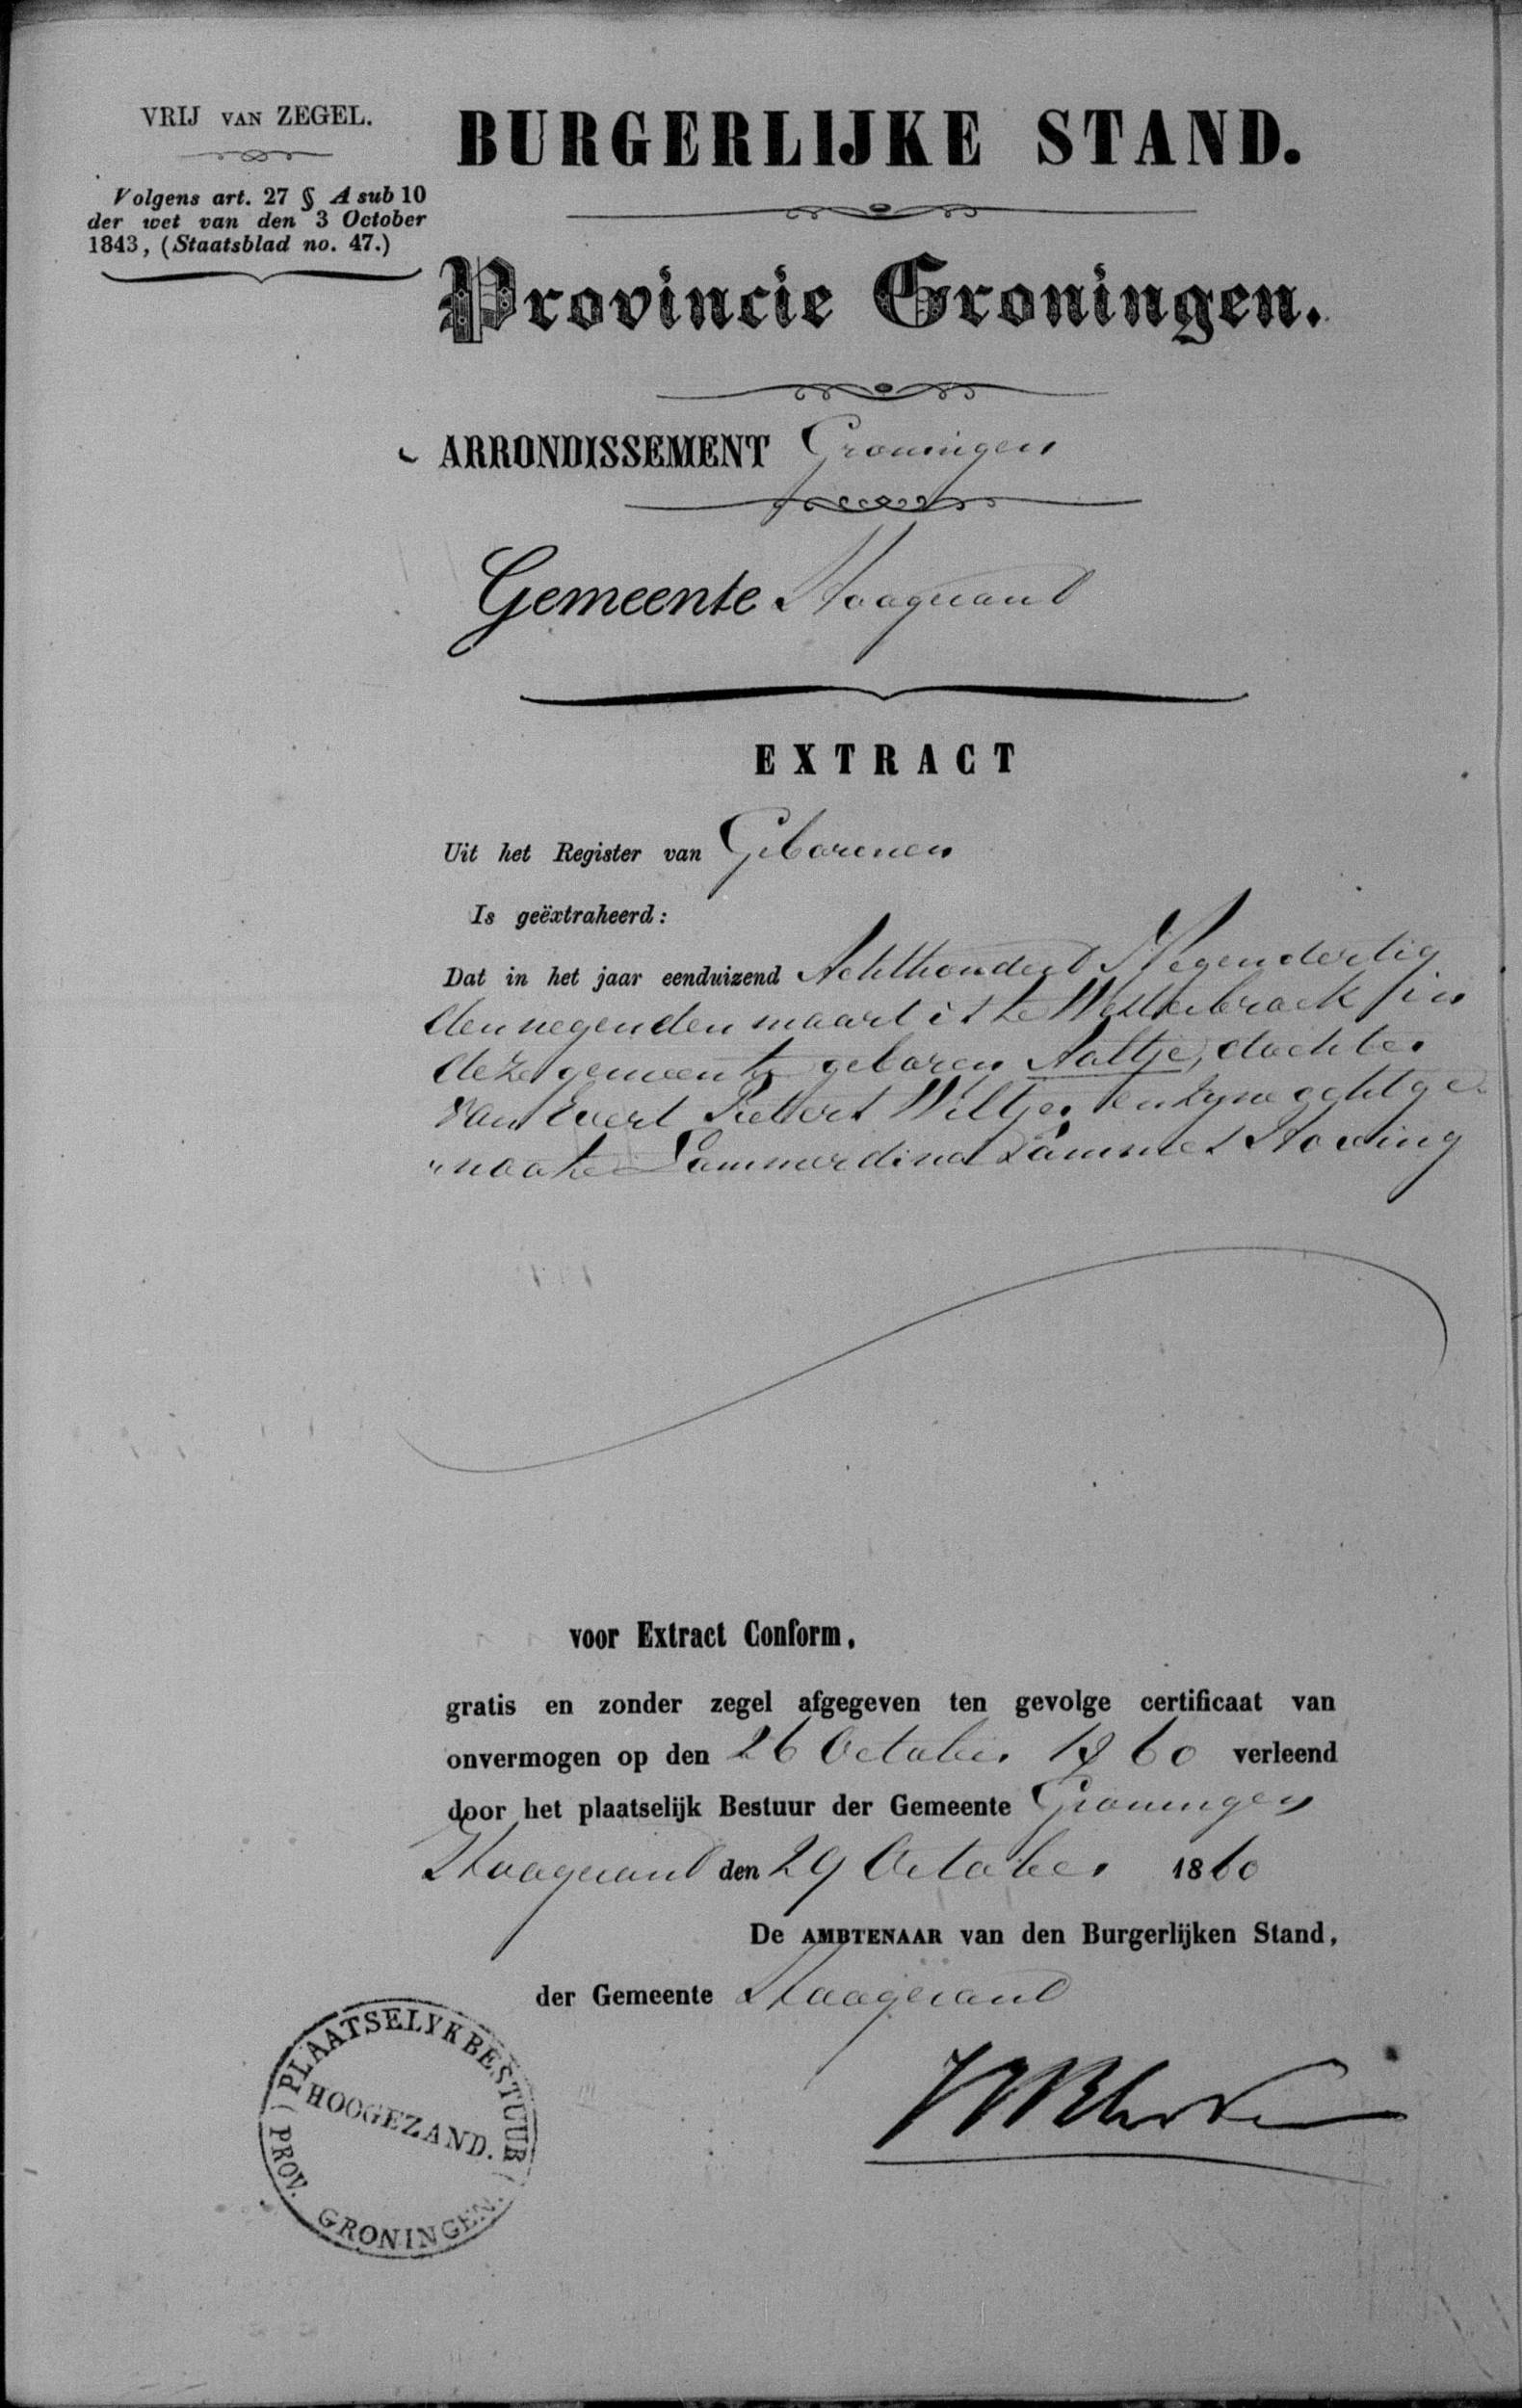 VRIJ VAN ZEGEL.
Volgens art. 27 § A sub 10
der wet van den 3 October
1843, (Staatsblad no. 47.)
BURGERLIJKE STAND.
Provincie Groningen.
ARRONDISSEMENT Groningen
Gemeente Hoogezand
EXTRACT
Uit het Register van Geborenen
Is geëxtraheerd:
Dat in het jaar eenduizend Achthonderd Negendertig
den negenden maart is te Westerbroek in
deze gemeente geboren Aaltje, dochter
van Evert Wiltjer en zyne echtge
"noote Lammerdina Lammes Hoving
voor Extract Conform,
gratis en zonder zegel afgegeven ten gevolge certificaat van
onvermogen op den 26 October 1860 verleend
door het plaatselijk Bestuur der Gemeente Groningen
Hoogezand den 29 October 1860
De AMBTENAAR van den Burgerlijken Stand,
der Gemeente Hoogezand
PLAATSELYK BESTUUR
HOOGEZAND.
PROV. GRONINGEN.